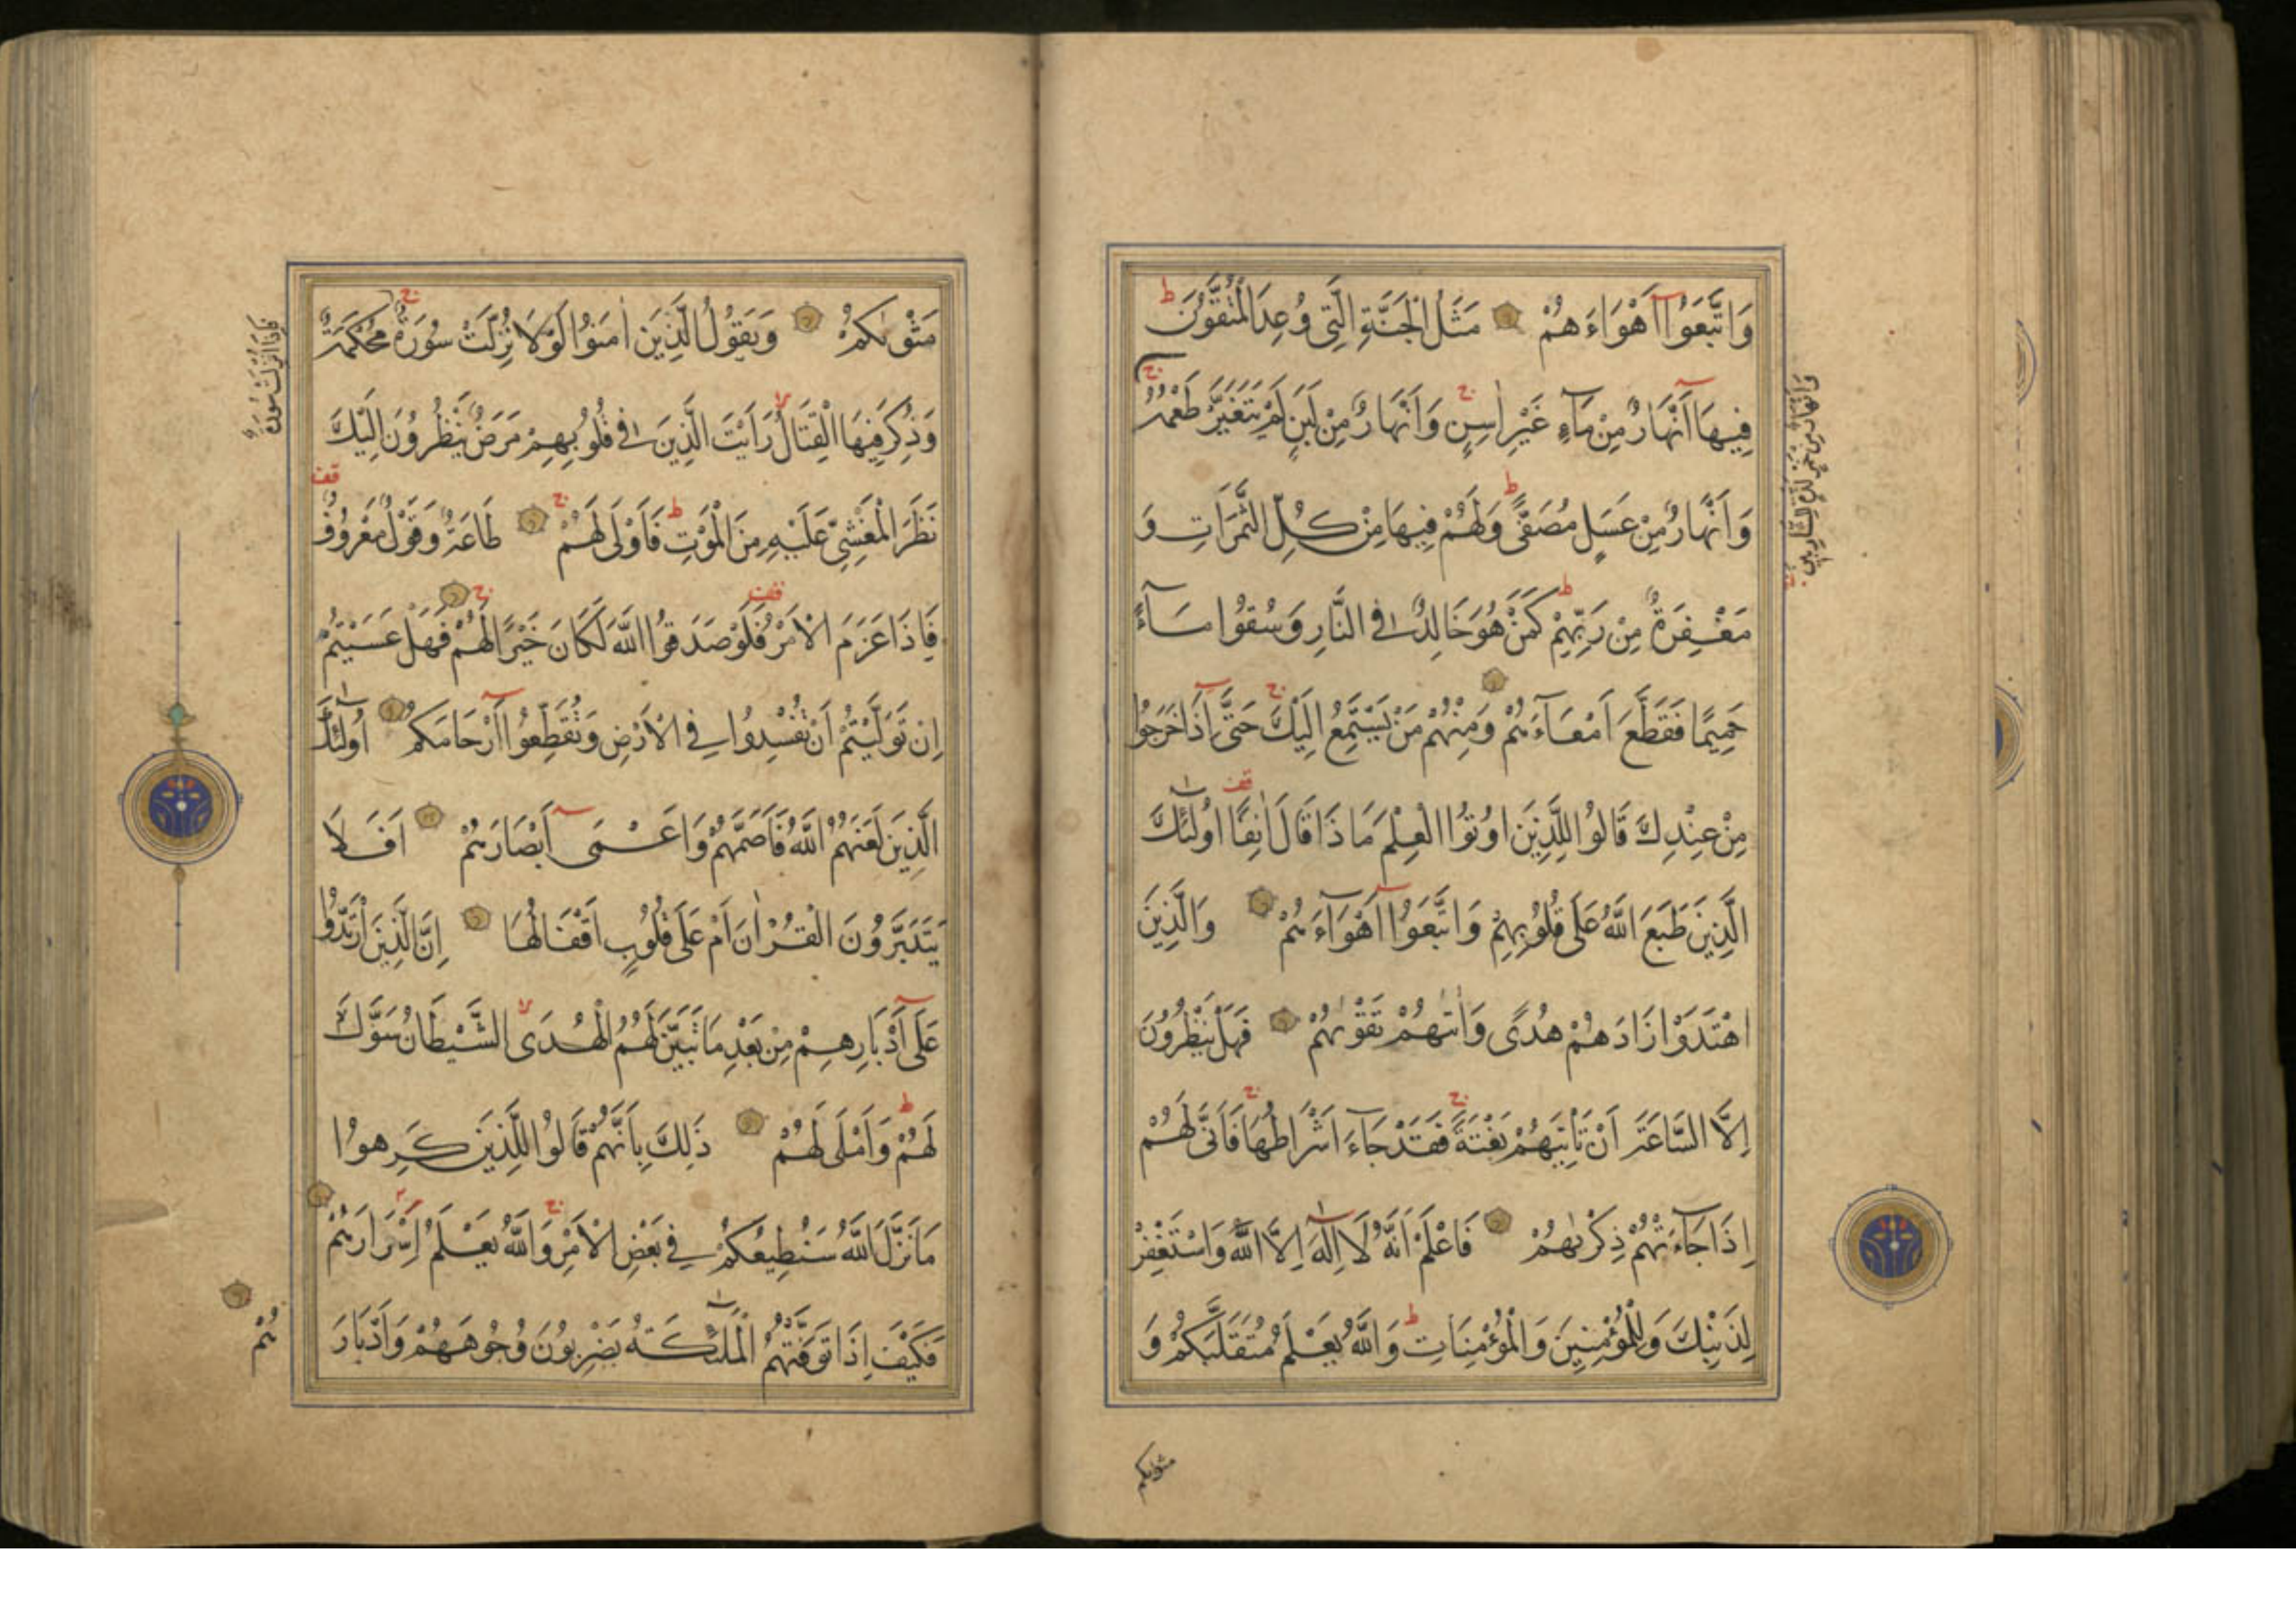 وَاتَّبَعُوا أَهْوَاءَهُمْ مَثَلُ الْجَنَّةِ الَّتِي وُعِدَ الْمُتَّقُونَ ط
فِيهَا أَنْهَارٌ مِنْ مَآءٍ غَيْرِ اٰسِنٍ ج وَأَنْهَارٌ مِنْ لَبَنٍ لَمْ يَتَغَيَّرْ طَعْمُهُ ج
وَأَنْهَارٌ مِنْ عَسَلٍ مُصَفًّى ط وَلَهُمْ فِيهَا مِنْ كُلِّ الثَّمَرَاتِ وَ
مَغْفِرَةٌ مِنْ رَبِّهِمْ ط كَمَنْ هُوَ خَالِدٌ فِي النَّارِ وَسُقُوا مَآءً
حَمِيمًا فَقَطَّعَ أَمْعَآءَهُمْ وَمِنْهُمْ مَنْ يَسْتَمِعُ إِلَيْكَ ج حَتَّى إِذَا خَرَجُوا
مِنْ عِنْدِكَ قَالُوا لِلَّذِينَ اُوتُوا الْعِلْمَ مَاذَا قَالَ اٰنِفًا قف أُولٰئِكَ
الَّذِينَ طَبَعَ اللَّهُ عَلَى قُلُوبِهِمْ وَاتَّبَعُوا أَهْوَآءَهُمْ وَالَّذِينَ
اهْتَدَوْا زَادَهُمْ هُدًى وَاٰتٰهُمْ تَقْوٰىهُمْ فَهَلْ يَنْظُرُونَ
إِلَّا السَّاعَةَ أَنْ تَأْتِيَهُمْ بَغْتَةً ج فَقَدْ جَآءَ أَشْرَاطُهَا ج فَأَنَّى لَهُمْ
إِذَا جَآءَتْهُمْ ذِكْرٰىهُمْ فَاعْلَمْ أَنَّهُ لَا إِلٰهَ إِلَّا اللَّهُ وَاسْتَغْفِرْ
لِذَنْبِكَ وَلِلْمُؤْمِنِينَ وَالْمُؤْمِنَاتِ ط وَاللَّهُ يَعْلَمُ مُتَقَلَّبَكُمْ وَ
مثوىكم
مَثْوٰىكُمْ وَيَقُولُ الَّذِينَ اٰمَنُوا لَوْلَا نُزِّلَتْ سُورَةٌ ج مُحْكَمَةٌ
فَإِذَا أُنْزِلَتْ سُورَةٌ
وَذُكِرَ فِيهَا الْقِتَالُ لا رَأَيْتَ الَّذِينَ فِي قُلُوبِهِمْ مَرَضٌ يَنْظُرُونَ إِلَيْكَ
نَظَرَ الْمَغْشِيِّ عَلَيْهِ مِنَ الْمَوْتِ ط فَأَوْلَى لَهُمْ ج طَاعَةٌ وَقَوْلٌ مَعْرُوفٌ قف
فَإِذَا عَزَمَ الْأَمْرُ قف فَلَوْ صَدَقُوا اللَّهَ لَكَانَ خَيْرًا لَهُمْ ج فَهَلْ عَسَيْتُمْ
إِنْ تَوَلَّيْتُمْ أَنْ تُفْسِدُوا فِي الْأَرْضِ وَتُقَطِّعُوا أَرْحَامَكُمْ أُولٰئِكَ
الَّذِينَ لَعَنَهُمُ اللَّهُ فَأَصَمَّهُمْ وَأَعْمَى أَبْصَارَهُمْ أَفَلَا
يَتَدَبَّرُونَ الْقُرْاٰنَ أَمْ عَلَى قُلُوبٍ أَقْفَالُهَا إِنَّ الَّذِينَ ارْتَدُّوا
عَلَى أَدْبَارِهِمْ مِنْ بَعْدِ مَا تَبَيَّنَ لَهُمُ الْهُدَى لا الشَّيْطَانُ سَوَّلَ
لَهُمْ ط وَأَمْلَى لَهُمْ ذَلِكَ بِأَنَّهُمْ قَالُوا لِلَّذِينَ كَرِهُوا
مَا نَزَّلَ اللَّهُ سَنُطِيعُكُمْ فِي بَعْضِ الْأَمْرِ ج وَاللَّهُ يَعْلَمُ إِسْرَارَهُمْ
فَكَيْفَ إِذَا تَوَفَّتْهُمُ الْمَلٰئِكَةُ يَضْرِبُونَ وُجُوهَهُمْ وَأَدْبَارَ
هُمْ